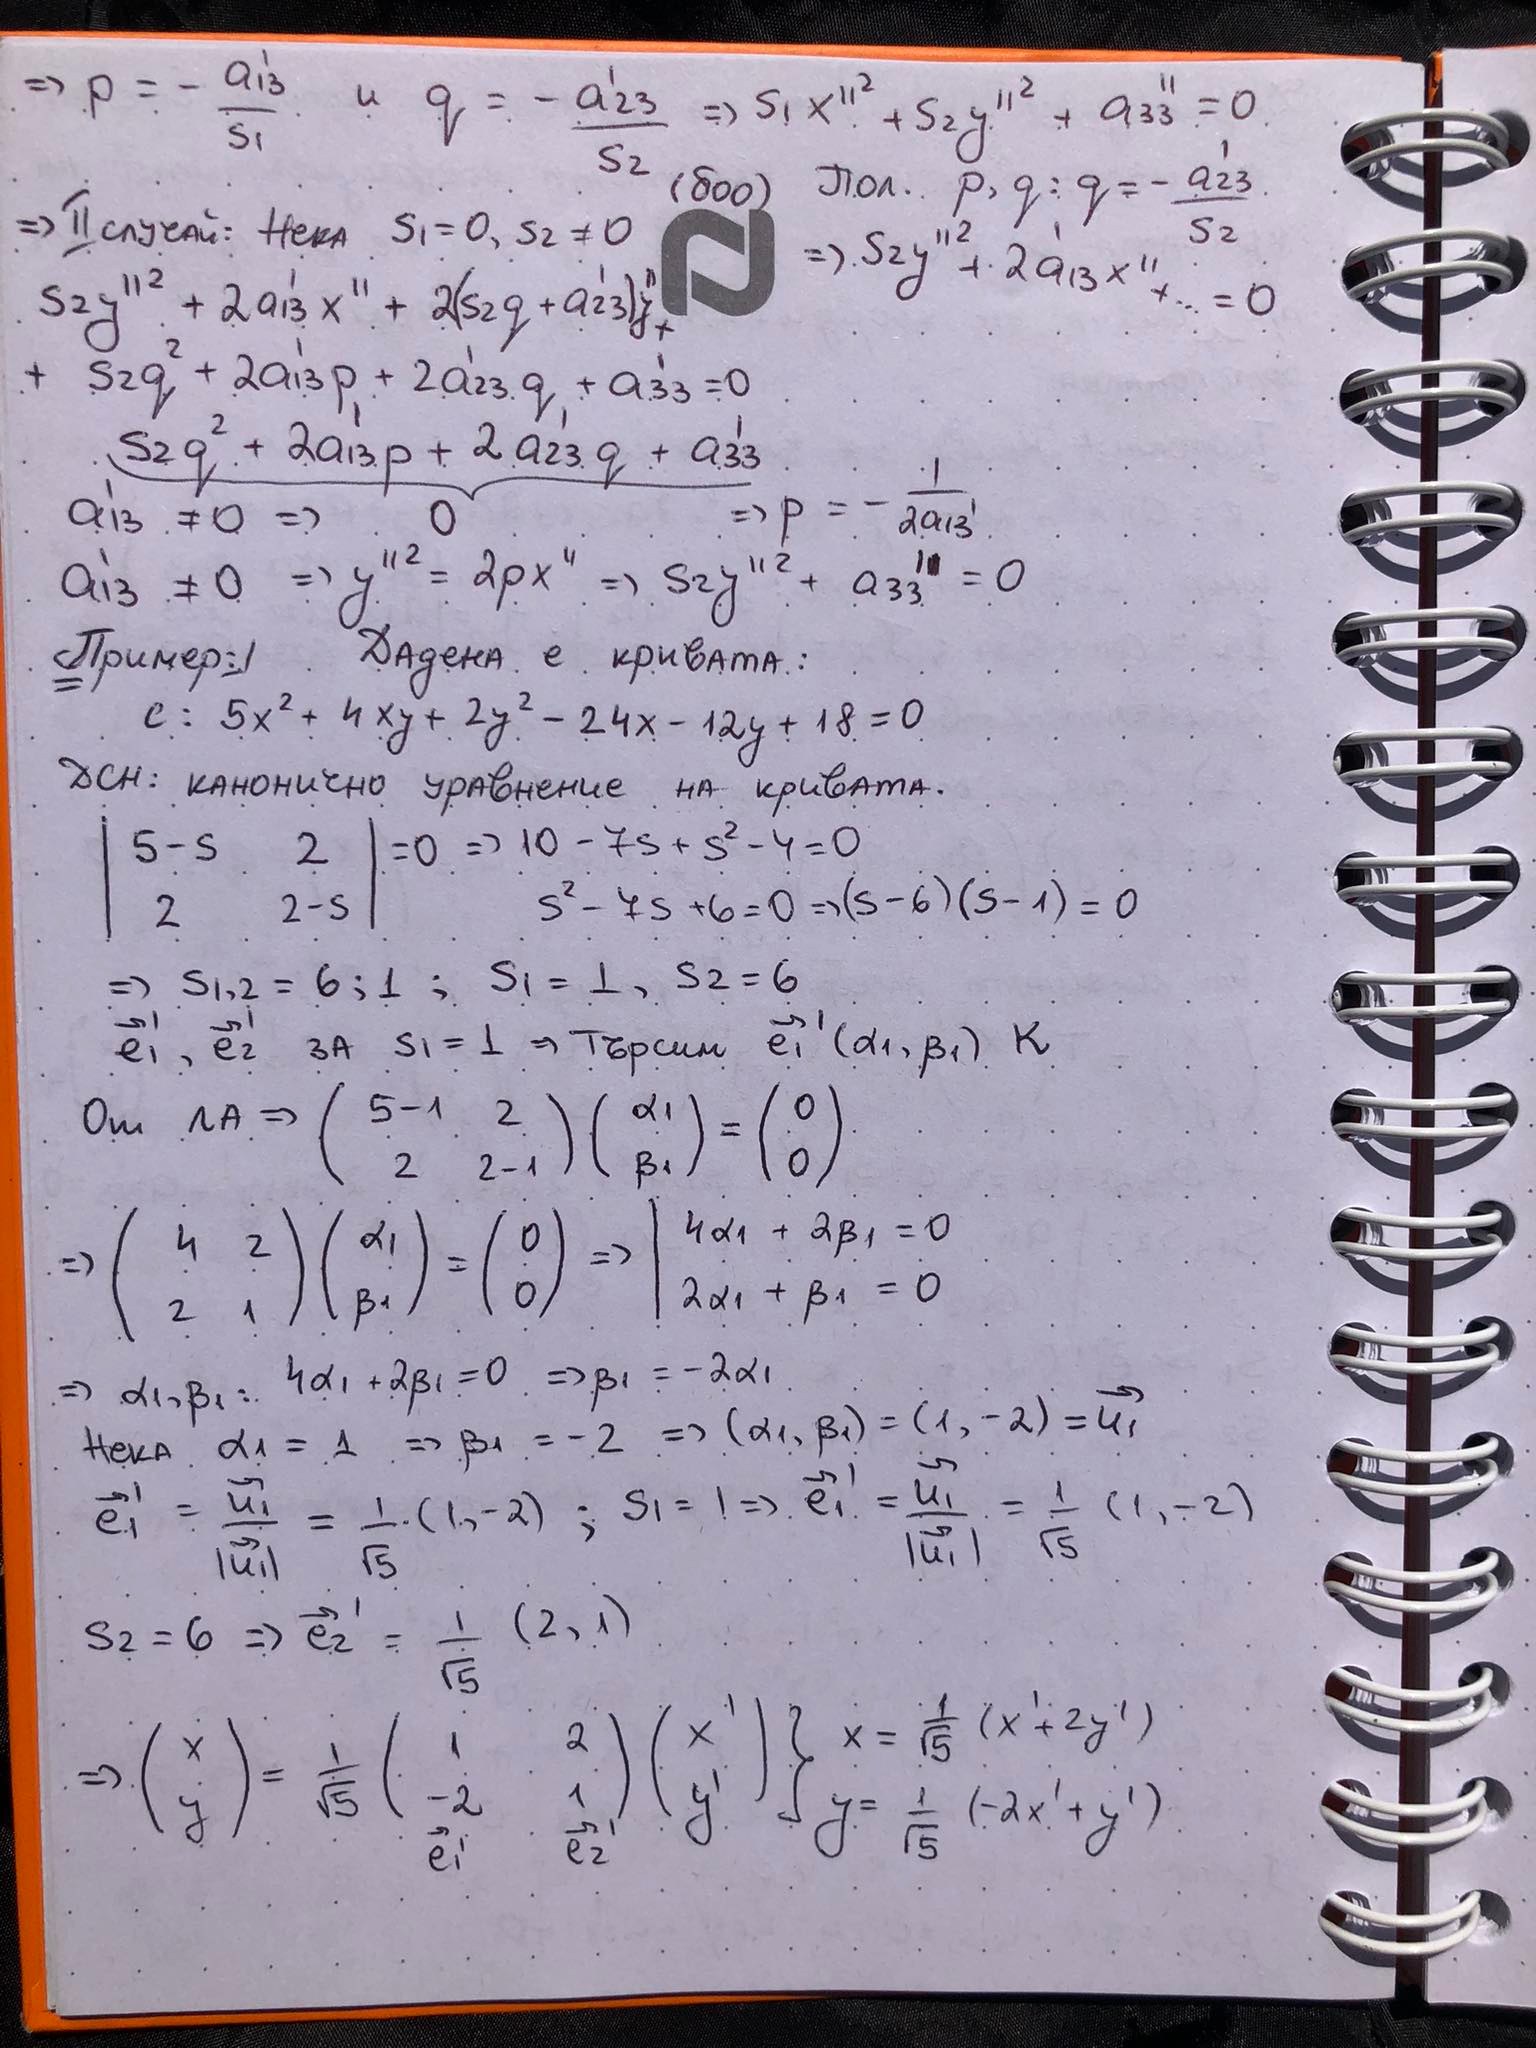 => p = - a'13/s1 и q = - a'23/s2 => s1x''² + s2y''² + a33'' = 0
(боо) Пол. p, q : q = - a'23/s2
=> II случай: Нека s1 = 0, s2 ≠ 0
=> s2y''² + 2a'13x'' + ... = 0
s2y''² + 2a'13x'' + 2(s2q + a'23)y'' +
+ s2q² + 2a'13p + 2a'23q + a'33 = 0
s2q² + 2a'13p + 2a'23q + a'33
a'13 ≠ 0 => 0 => p = - 1/2a'13
a'13 ≠ 0 => y''² = 2px'' => s2y''² + a33''' = 0
Пример:1 Дадена е кривата:
c: 5x² + 4xy + 2y² - 24x - 12y + 18 = 0
ДСН: канонично уравнение на кривата.
| 5-s 2 | = 0 => 10 - 7s + s² - 4 = 0
| 2 2-s | s² - 7s + 6 = 0 => (s-6)(s-1) = 0
=> s1,2 = 6; 1 ; s1 = 1, s2 = 6
e⃗1', e⃗2' за s1 = 1 => Търсим e⃗1'(α1, β1) K
От ЛА => ( 5-1 2 ) ( α1 ) = ( 0 )
( 2 2-1 ) ( β1 ) ( 0 )
=> ( 4 2 ) ( α1 ) = ( 0 ) => | 4α1 + 2β1 = 0
( 2 1 ) ( β1 ) ( 0 ) | 2α1 + β1 = 0
=> α1, β1: 4α1 + 2β1 = 0 => β1 = -2α1
Нека α1 = 1 => β1 = -2 => (α1, β1) = (1, -2) = u⃗1
e⃗1' = u⃗1/|u⃗1| = 1/√5 . (1, -2) ; s1 = 1 => e⃗1' = u⃗1/|u⃗1| = 1/√5 (1, -2)
s2 = 6 => e⃗2' = 1/√5 (2, 1)
=> ( x ) = 1/√5 ( 1 2 ) ( x' ) } x = 1/√5 (x' + 2y')
( y ) ( -2 1 ) ( y' ) } y = 1/√5 (-2x' + y')
e⃗1' e⃗2'